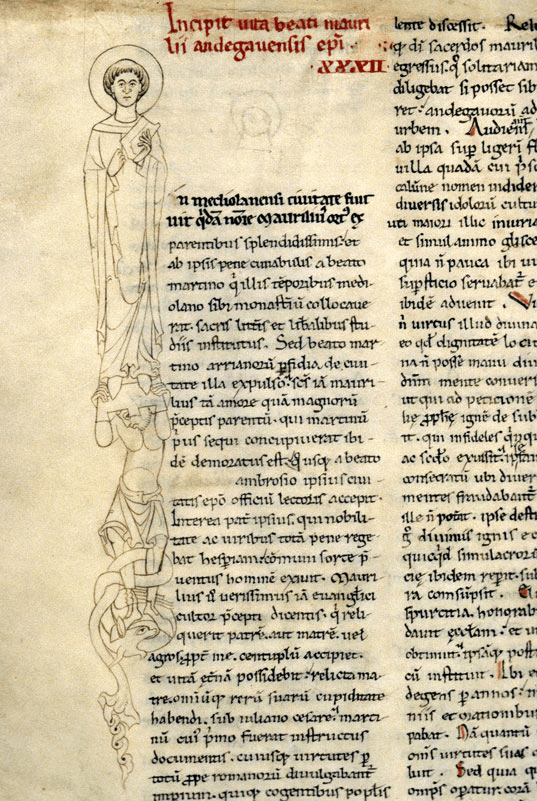 Incipit vita beati mauri
lii andegavensis epi.
XXXII
In mediolanensi civitate fuit
vir qdā noīe Maurilius ort' ex
parentibus splendidissimis. et
ab ipsis pene cunabulis a beato
martino q illis tēporibus medi
olano sibi monastiū collocave
rat. sacris littis et libalibus stu
diis institutus. Sed beato mar
tino arrianorū pfidia de civi
tate illa expulso. scs iā mauri
lius tā amore quā magnorū
pceptis parentū. qui martinū
pus sequi concupiverat ibi
dē demoratus est. a beato
ambrosio ipsius civi
tatis epo officiū lectoris accepit.
Interea pat ipsius, qui nobili
tate ac viribus totā pene rege
bat hesperiā. cōmuni sorte p
ventus hominē exivit. Mauri
lius verissimus iā evanglici
cultor pcepti dicentis. q reli
querit patrē. aut matrē. vel
agros. ppt me. centuplū accipiet.
et vitā etnā possidebit. relicta ma
tre. omiūq rerū suarū cupiditate
habendi. sub iuliano cesare. marti
nū cui' pmo fuerat instructus
documentis. cuiusq virtutes p
totū ppe romanorū divulgabant
impium. quiq cogentibus poplis
lente discessit. Reli
q di sacerdos mauril
egressus. q solitariam
diligebat si posset sib
ret. andegavorū ad
urbem. Audiens
ab ipsa sup ligeri fl
villa quadā cui psc
calūne nomen indider
diversis idolorū cultu
uti maiori illic iniuria
et simul animo glisce
quia n pauca ibi vi
supsticio servabat. e
ibidē advenit. Vi
n virtus illud divina
eo qd dignitatē lo
na n posse manu
mente convers
ut qui ad peticionē
lię pphę ignē de sub
it. qui infideles
ac scdo exussit.
consecratū ubi diver
mentes fraudabant
ille n potit. ipse desti
g divinus ignis e c
quicqd simulacroru
cię ibidem repit. sub
ra comsūpsit. Ei
spurcitia. honorab
davit ecclam. et m
obtinuit. ipsāq posti
cū instituit. Ibi e
degens p annos. m
niis et orationibus
pabat. Nā quantū
oms virtutes suas
buit. Sed quia q
omps opatur. corā